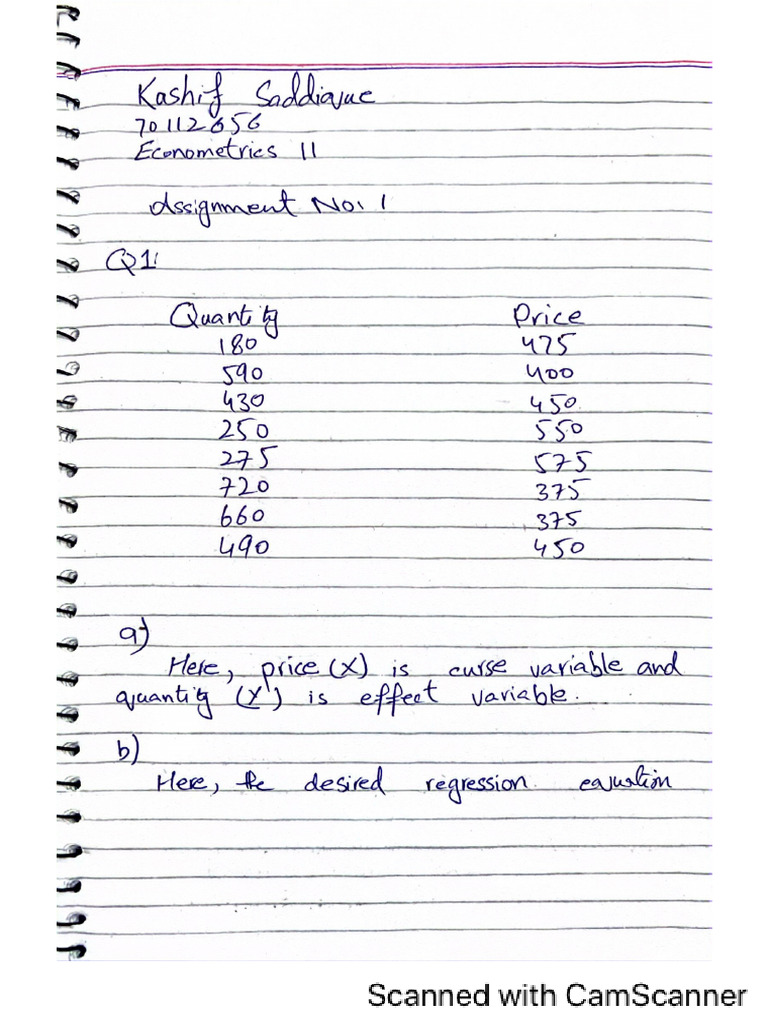 Kashif Saddiaque
70112656
Econometrics II
Assignment No: 1
Q1:
Quantity Price
180 475
590 400
430 450
250 550
275 575
720 375
660 375
490 450
a)
Here, price (X) is curse variable and
quantity (Y) is effect variable.
b)
Here, the desired regression equation
Scanned with CamScanner